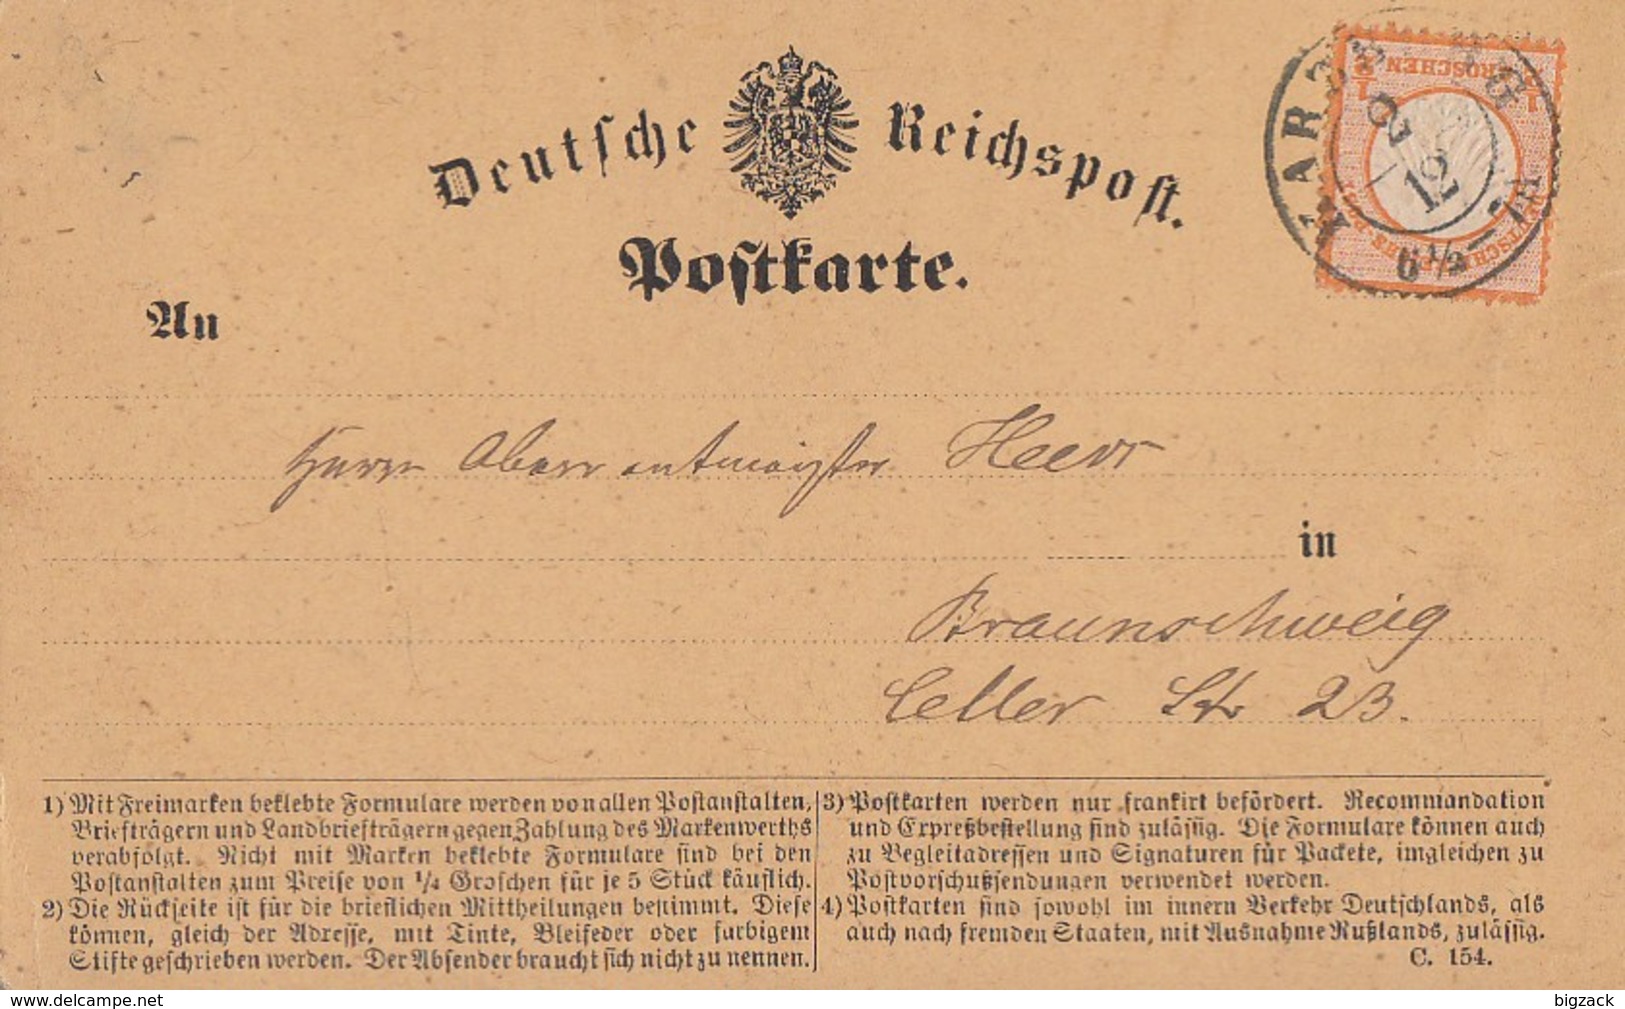 Deutsche Reichspost.
Postkarte.
An
Herrn Oberamtmeister Heer
in
Braunschweig
Celler Str 23.
HARZBURG
2
12
6½-7
½ GROSCHEN ½
DEUTSCHE REICHS-POST
1) Mit Freimarken beklebte Formulare werden von allen Postanstalten,
Briefträgern und Landbriefträgern gegen Zahlung des Markenwerths
verabfolgt. Nicht mit Marken beklebte Formulare sind bei den
Postanstalten zum Preise von ¼ Groschen für je 5 Stück käuflich.
2) Die Rückseite ist für die brieflichen Mittheilungen bestimmt. Diese
können, gleich der Adresse, mit Tinte, Bleifeder oder farbigem
Stifte geschrieben werden. Der Absender braucht sich nicht zu nennen.
3) Postkarten werden nur frankirt befördert. Recommandation
und Expreßbestellung sind zulässig. Die Formulare können auch
zu Begleitadressen und Signaturen für Packete, imgleichen zu
Postvorschußsendungen verwendet werden.
4) Postkarten sind sowohl im innern Verkehr Deutschlands, als
auch nach fremden Staaten, mit Ausnahme Rußlands, zulässig.
C. 154.
www.delcampe.net
bigzack